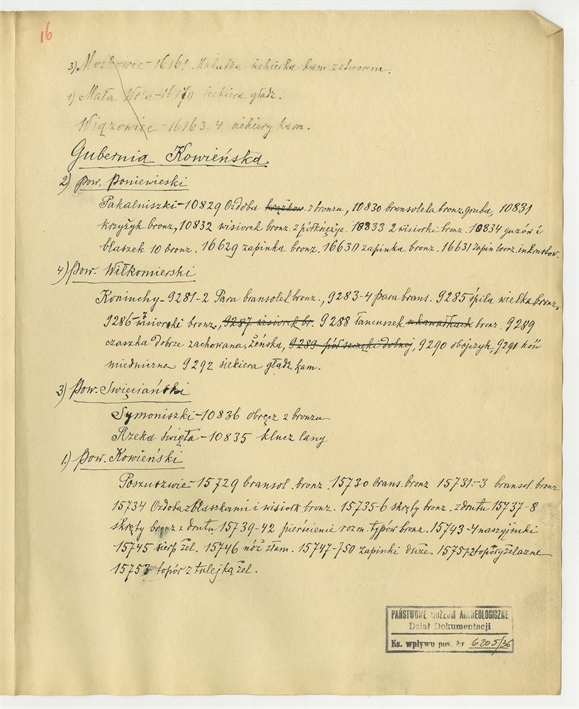 16
3) Mostowie - 16161 Malutka siekierka kam. z otworem.
1) Mała Wola - 16170 siekiera gładz.
Wiązowiec - 16163-4 siekiery kam.
Gubernia Kowieńska
2) pow. Poniewieski
Pakalniszki - 10829 Ozdoba z bronzu, 10830 bransoleta bronz. gruba, 10831
krzyżyk bronz, 10832 wisiorek bronz. z półksiężyc. 10833 2 wisiorki bronz. 10834 guzów i
blaszek 10 bronz. 16629 zapinka bronz. 16630 zapinka bronz. 16631 zapin. bronz. inkrustow.
4) pow. Wiłkomierski
Koniuchy - 9281-2 Para bransolet bronz., 9283-4 para brans. 9285 śpila wielka bronz.
9286 wisiorki bronz., 9287 wisiorek br. 9288 łancuszek bronz. 9289
czaszka dobrze zachowana, żeńska, 9290 obojczyk, 9291 kość
miednicza 9292 siekiera gładz. kam.
3) Pow. Święciański
Symoniszki - 10836 obręcz z bronzu
Rzeka Święta - 10835 klucz lany
1.) Pow. Kowieński
Poszuszwie - 15729 bransol. bronz. 15730 brans. bronz 15731-3 bransol. bronz
15734 Ozdoba z blaszkami i wisiork. bronz. 15735-6 skręty bronz. z drutu 15737-8
skręty bronz z drutu 15739-42 pierścienie rozm. typów bronz. 15743-4 naszyjniki
15745 sierp żel. 15746 nóż złam. 15747-750 zapinki duże. 15751-2 topory żelazne
15753 topór z tulejką żel.
PAŃSTWOWE MUZEUM ARCHEOLOGICZNE
Dział Dokumentacji
Ks. wpływu poz. Nr 6205/36